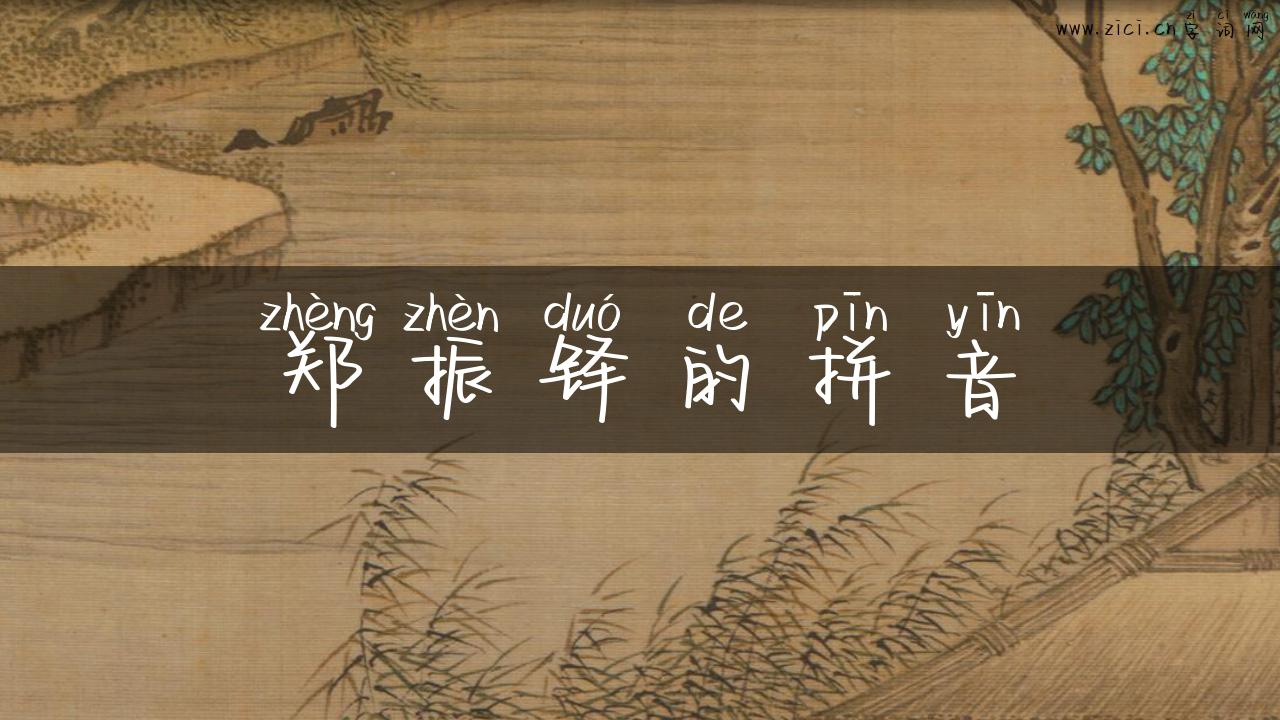 zì cí wǎng
www.zici.cn字词网
zhèng zhèn duó de pīn yīn
郑振铎的拼音